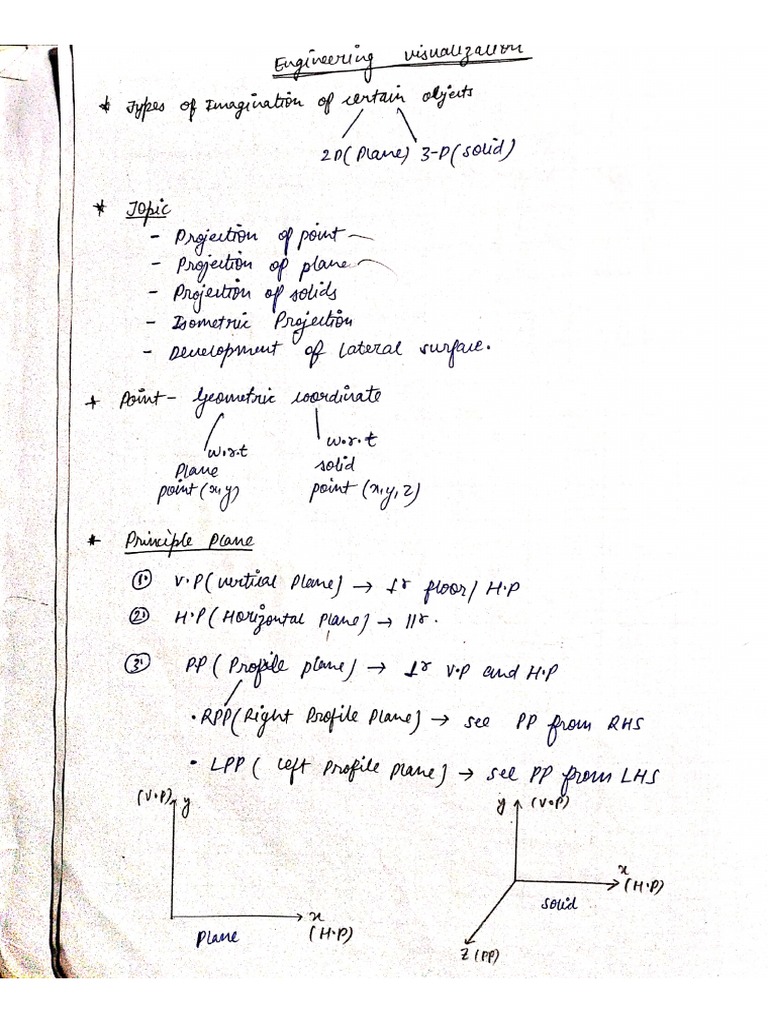 Engineering visualization
* Types of Imagination of certain objects
2D(Plane) 3-D(solid)
* Topic
- Projection of point
- Projection of plane
- Projection of solids
- Isometric Projection
- Development of lateral surface.
* Point - Geometric coordinate
w.r.t w.r.t
Plane solid
point(x,y) point (x,y,z)
* Principle plane
① V.P(vertical plane) → ⊥r floor/H.P
② H.P(Horizontal plane) → ||r.
③ PP( Profile plane) → ⊥r V.P and H.P
• RPP(Right Profile Plane) → see PP from RHS
• LPP( Left profile plane) → see PP from LHS
(V.P) y y (V.P)
x
(H.P)
solid
x
(H.P)
Plane
Z(PP)